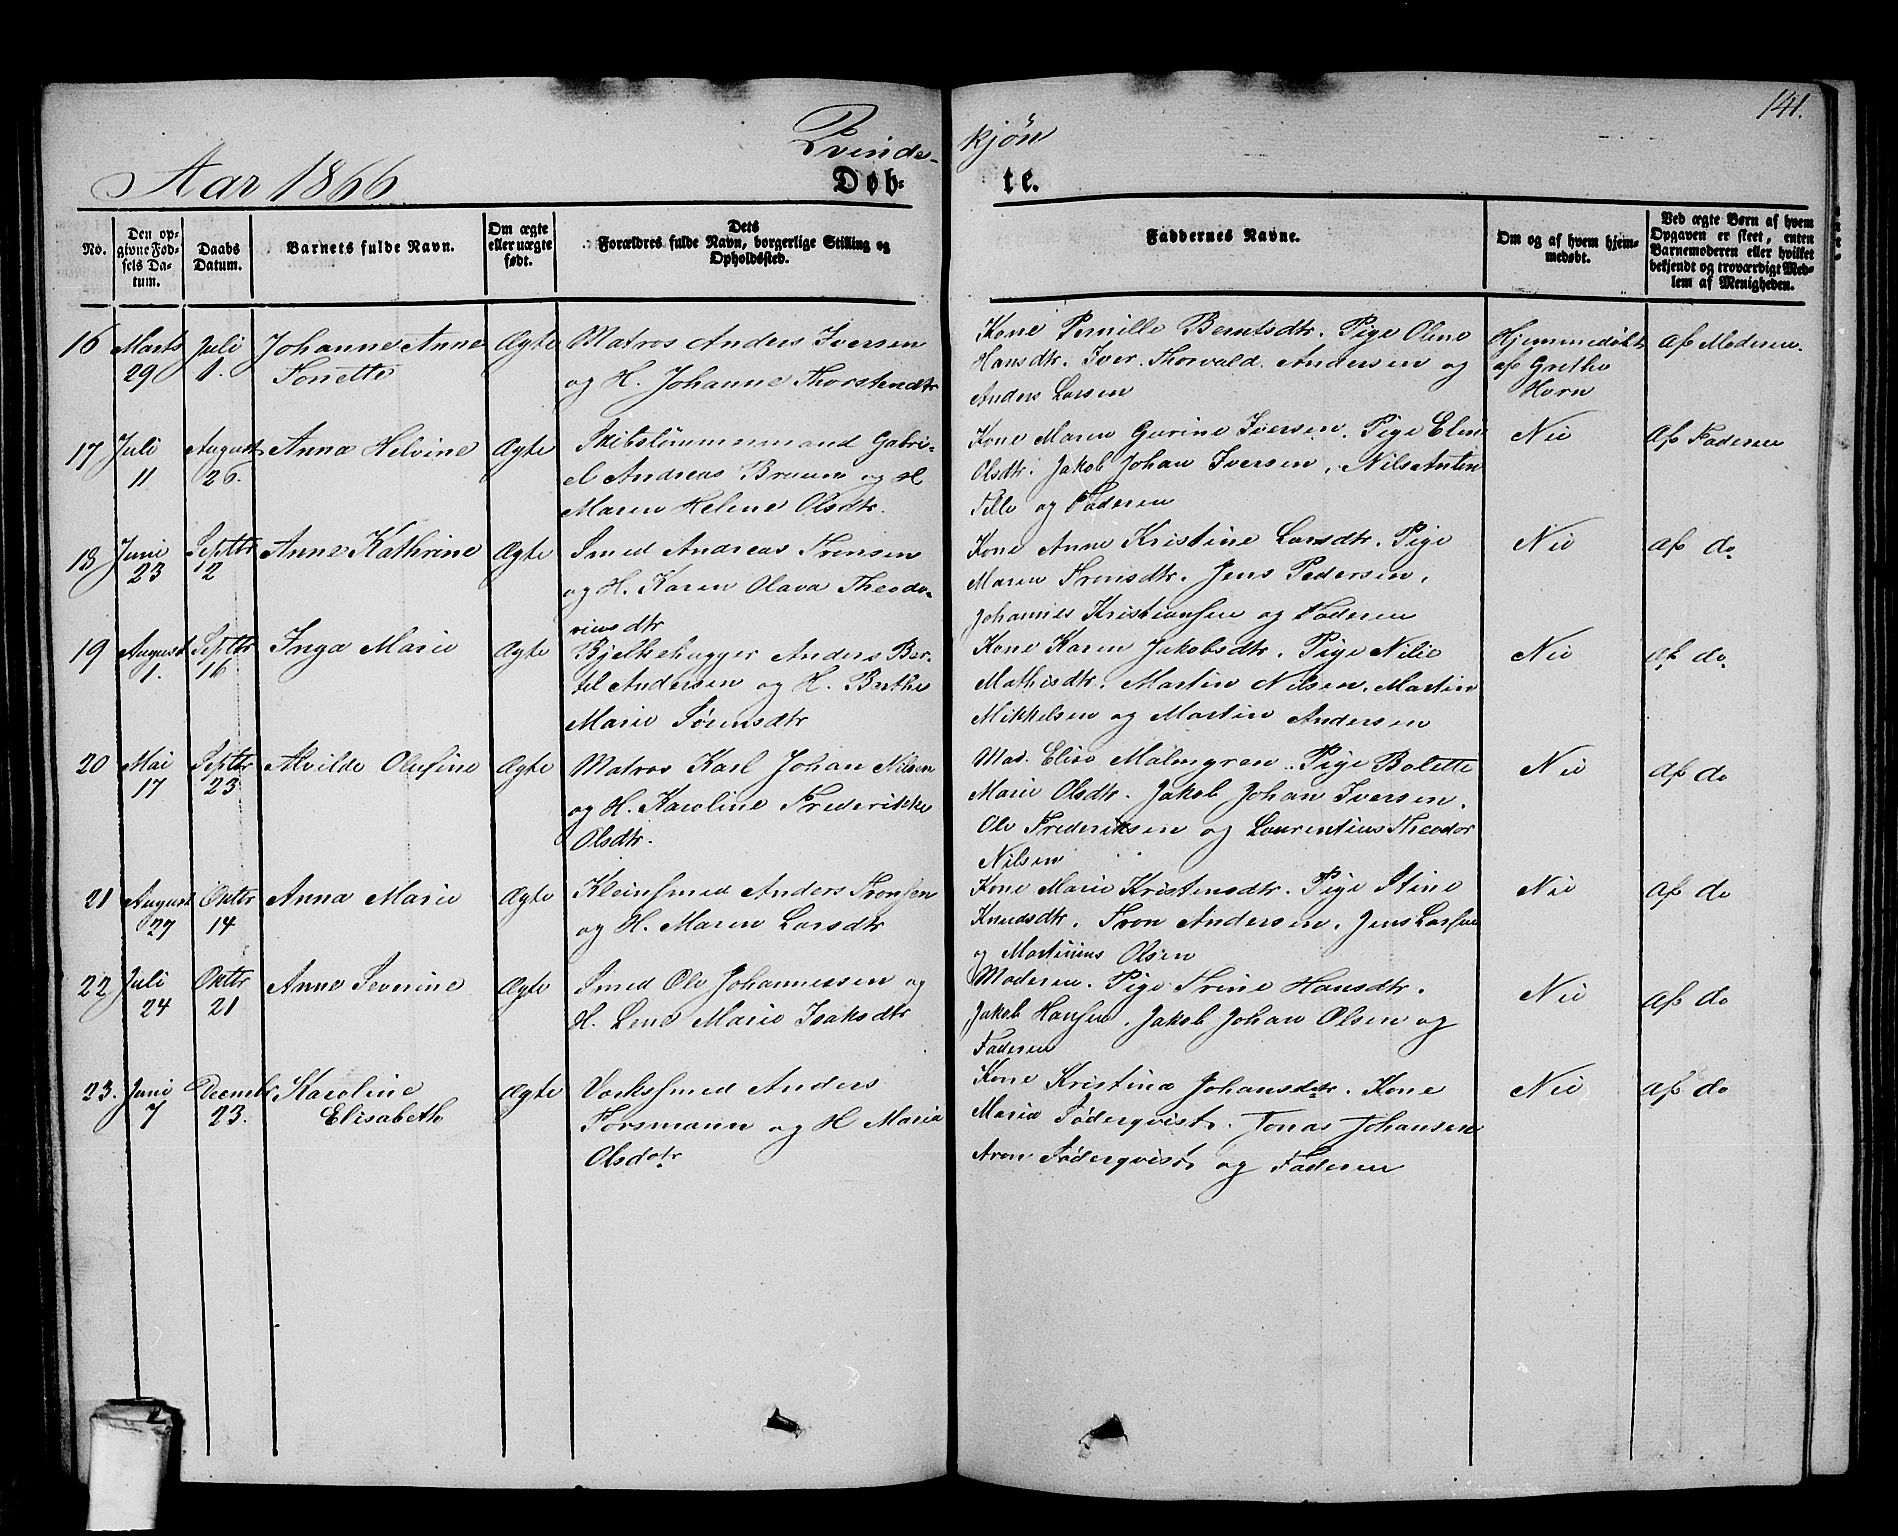 141.
Qvinde- kjøn
Aar 1866
Døb- te.
No.
Den op-
givne Fød-
sels Da-
tum.
Daabs
Datum.
Barnets fulde Navn.
Om ægte
eller uægte
født.
Dets
Forældres fulde Navn, borgerlige Stilling og
Opholdssted.
Faddernes Navne.
Om og af hvem hjem-
medøbt.
Ved ægte Børn af hvem
Opgaven er skeet, enten
Barnemoderen eller hvilket
bekjendt og troværdigt Med-
lem af Menigheden.
16 Marts 29 Juli 1. Johanne Anne
Sonette
Ægte
Matros Anders Iversen
og H. Johanne Thorstendtr
Kone Pernille Berntsdtr. Pige Oline
Hansdtr. Iver Thorvald Andersen og
Anders Larsen
Hjemmedøbt
af Grethe
Horn
af Moderen.
17 Juli 11 August 26. Anna Helvine
Ægte
Skibstømmermand Gabri-
el Andreas Bruun og H
Maren Helene Olsdtr.
Kone Maren Gurine Iversen. Pige Elen
Olsdtr. Jakob Johan Iversen, Nils Anton
og Faderen
Nei
af Faderen
18 Juni 23 Septbr 12 Anne Kathrine
Ægte
Smed Andreas Tronsen
og H. Karen Olava Theodo-
rinsdtr
Kone Anne Kristine Larsdtr. Pige
Maren Tronsdtr. Jens Pedersen,
Johannes Kristiansen og Faderen
Nei
af do
19 August 1. Septbr 16 Inga Marie
Ægte
Bjelkehugger Anders Ber-
tel Andersen og H. Berthe
Marie Sørensdtr
Kone Karen Jakobsdtr. Pige Nilie
Mathisdtr. Martin Nilsen, Martin
Mikkelsen og Martin Andersen
Nei
af do
20 Mai 17 Septbr 23 Alvilde Olufine
Ægte
Matros Karl Johan Nilsen
og H. Karoline Frederikke
Olsdtr.
Mad. Elise Malmgren. Pige Bolette
Marie Olsdtr. Jakob Johan Iversen.
Ole Frederiksen og Laurentius Theodor
Nilsen
Nei
af do
21 August 27 Oktbr 14 Anna Marie
Ægte
Kleinsmed Anders Tronsen
og H. Maren Larsdtr
Kone Marie Kristensdtr. Pige Stine
Knudsdtr. Tron Andersen, Jens Larsen
og Martinius Olsen
Nei
af do
22 Juli 24 Oktbr 21 Anne Severine
Ægte
Smed Ole Johannessen og
H. Lene Marie Isaksdtr
Moderen. Pige Trine Hansdtr.
Jakob Hansen, Jakob Johan Olsen og
Faderen
Nei
af do
23. Juni 7 Decembr 23. Karoline
Elisabeth
Ægte
Værksmed Anders
Forsmann og H Maria
Olsdotr
Kone Kristina Johansdtr. Kone
Maria Söderqvist. Jonas Johansen
Aron Söderqvist og Faderen
Nei
af do